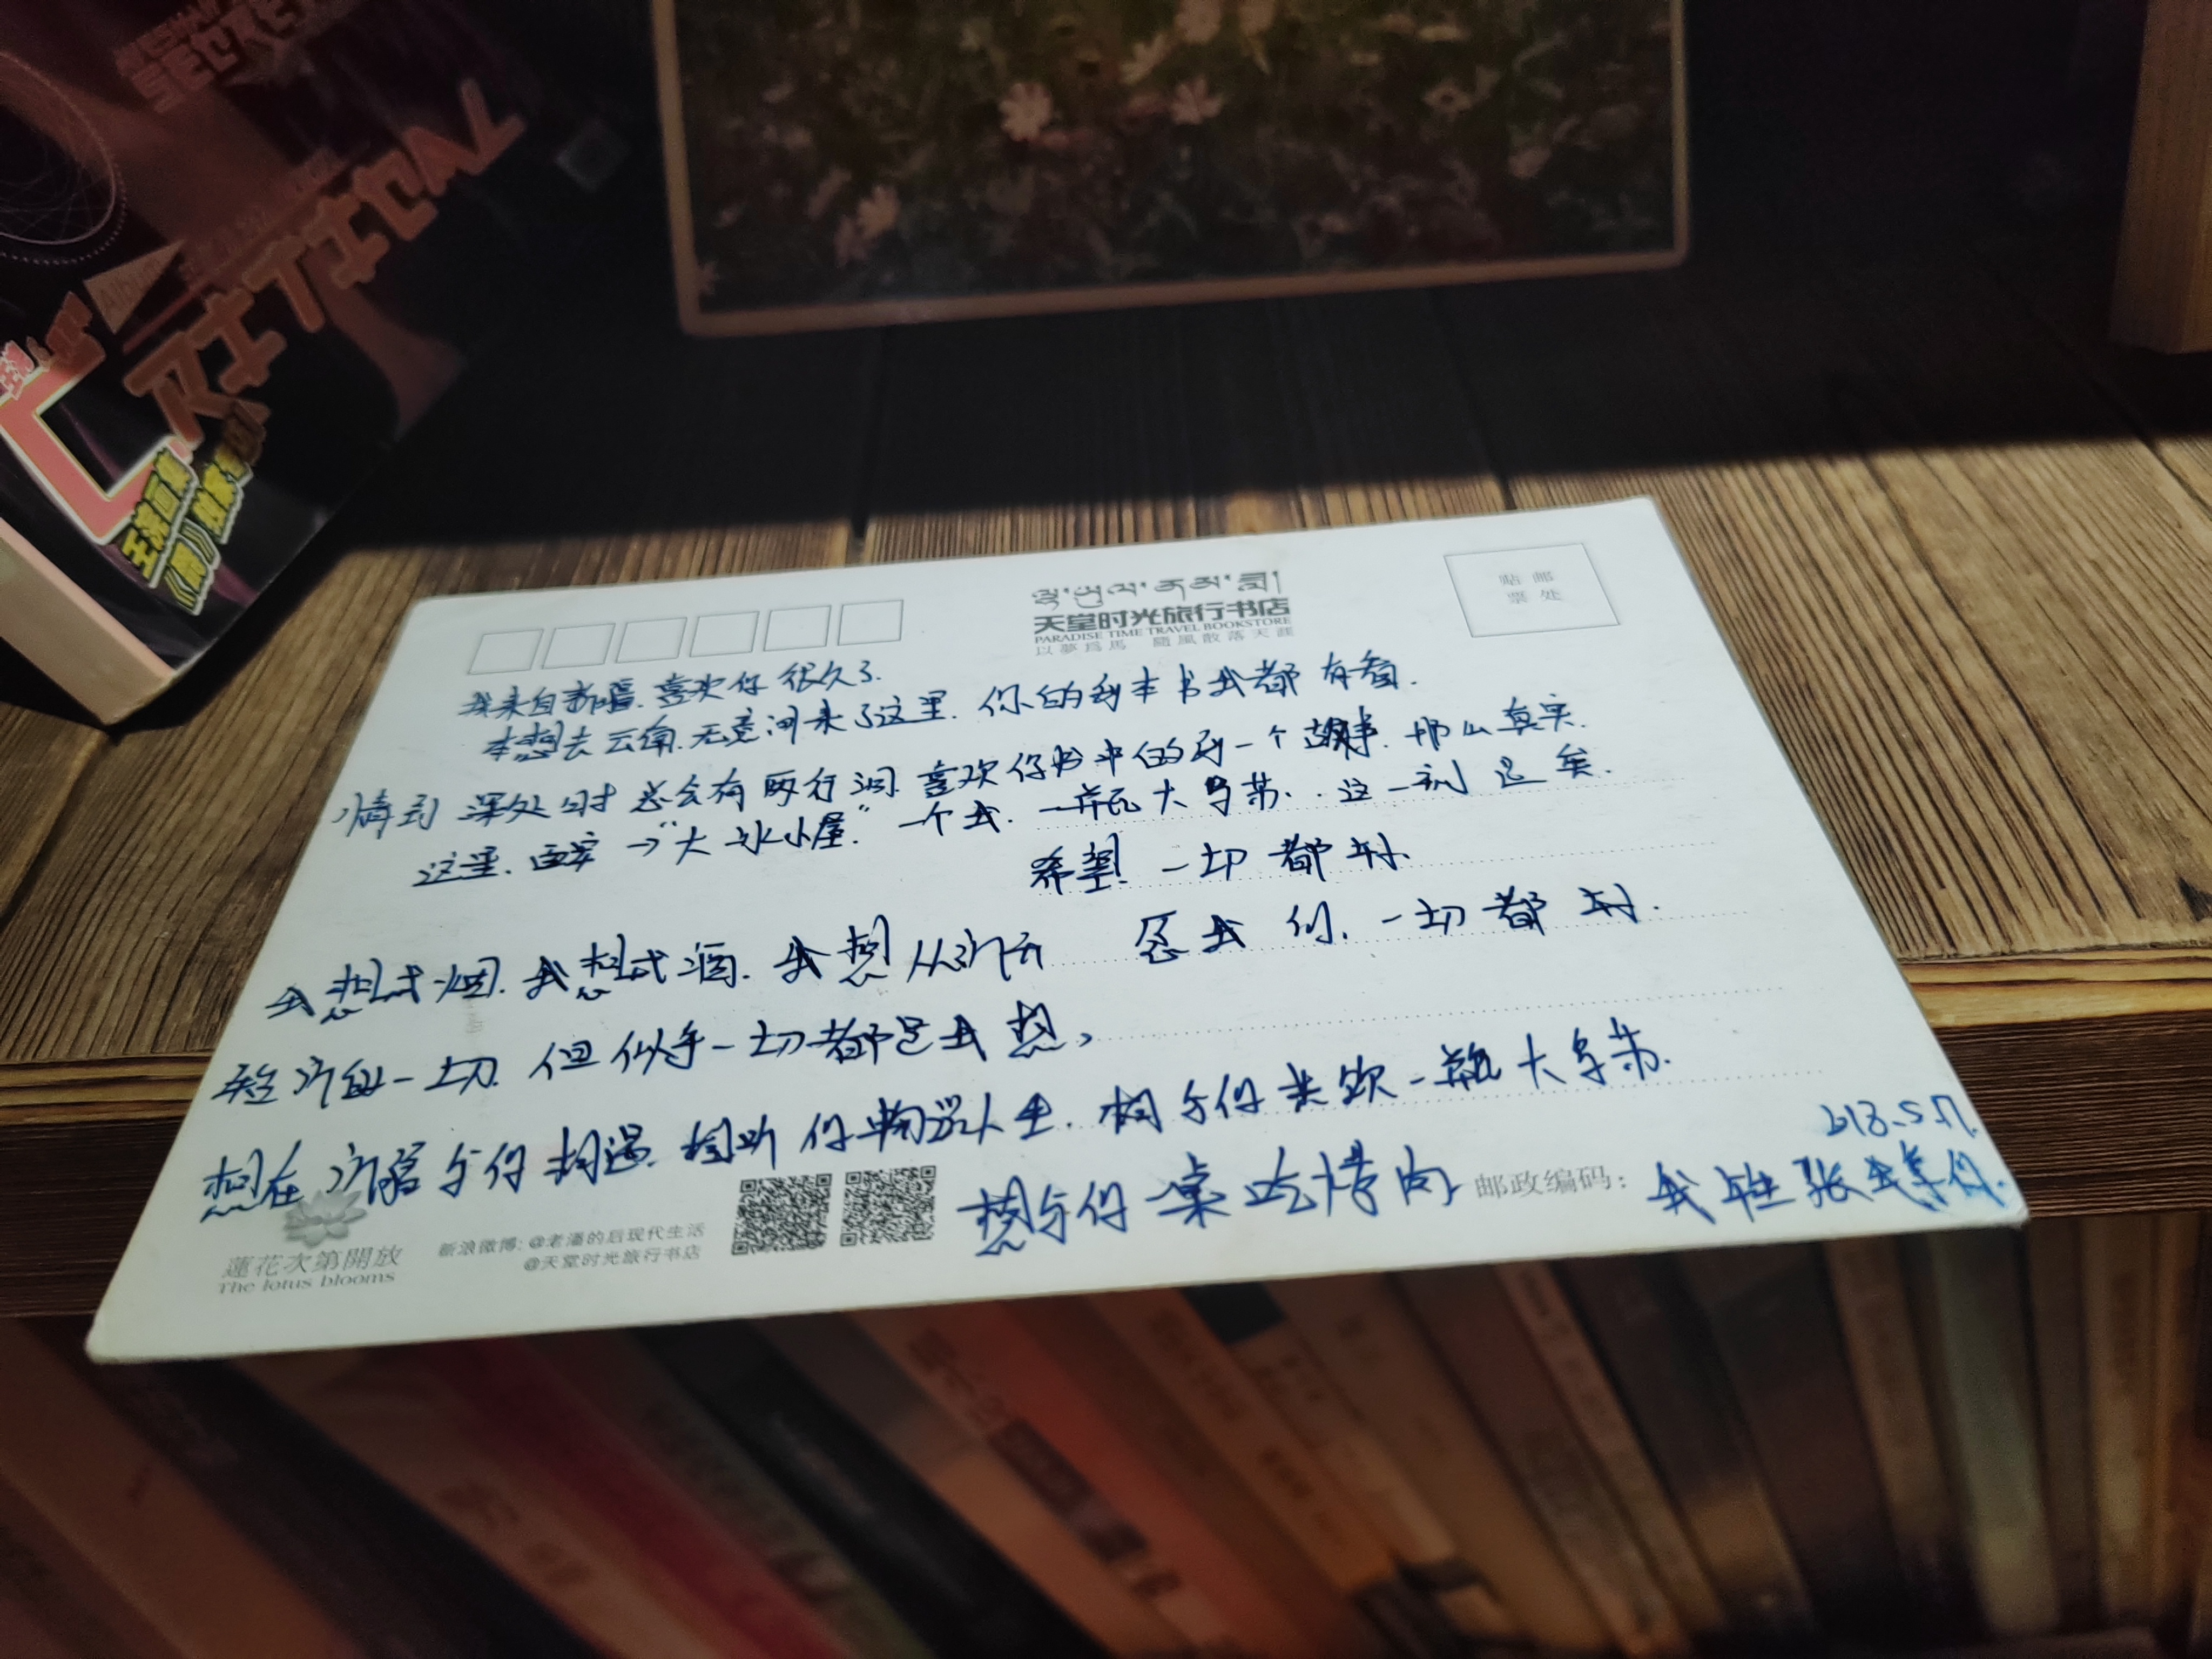 贴邮
票处
天堂时光旅行书店
PARADISE TIME TRAVEL BOOKSTORE
以夢為馬 隨風散落天涯
我来自新疆.喜欢你很久了.
本想去云南.无意间来了这里.你的每本书我都有看.
情到深处时总会有两行泪.喜欢你书中的每一个故事.那么真实.
这里.西安→"大冰小屋."一个我.一瓶大乌苏..这一刻足矣.
希望.一切都好.
愿我们.一切都好.
我想戒烟.我想戒酒.我想从新开
一切.但似乎一切都是我想,
想在新疆与你相遇.想听你畅谈人生.想与你共饮一瓶大乌苏.
想与你一桌吃烤肉
我姓张我等你.
邮政编码:
新浪微博:@老潘的后现代生活
@天堂时光旅行书店
蓮花次第開放
The lotus blooms